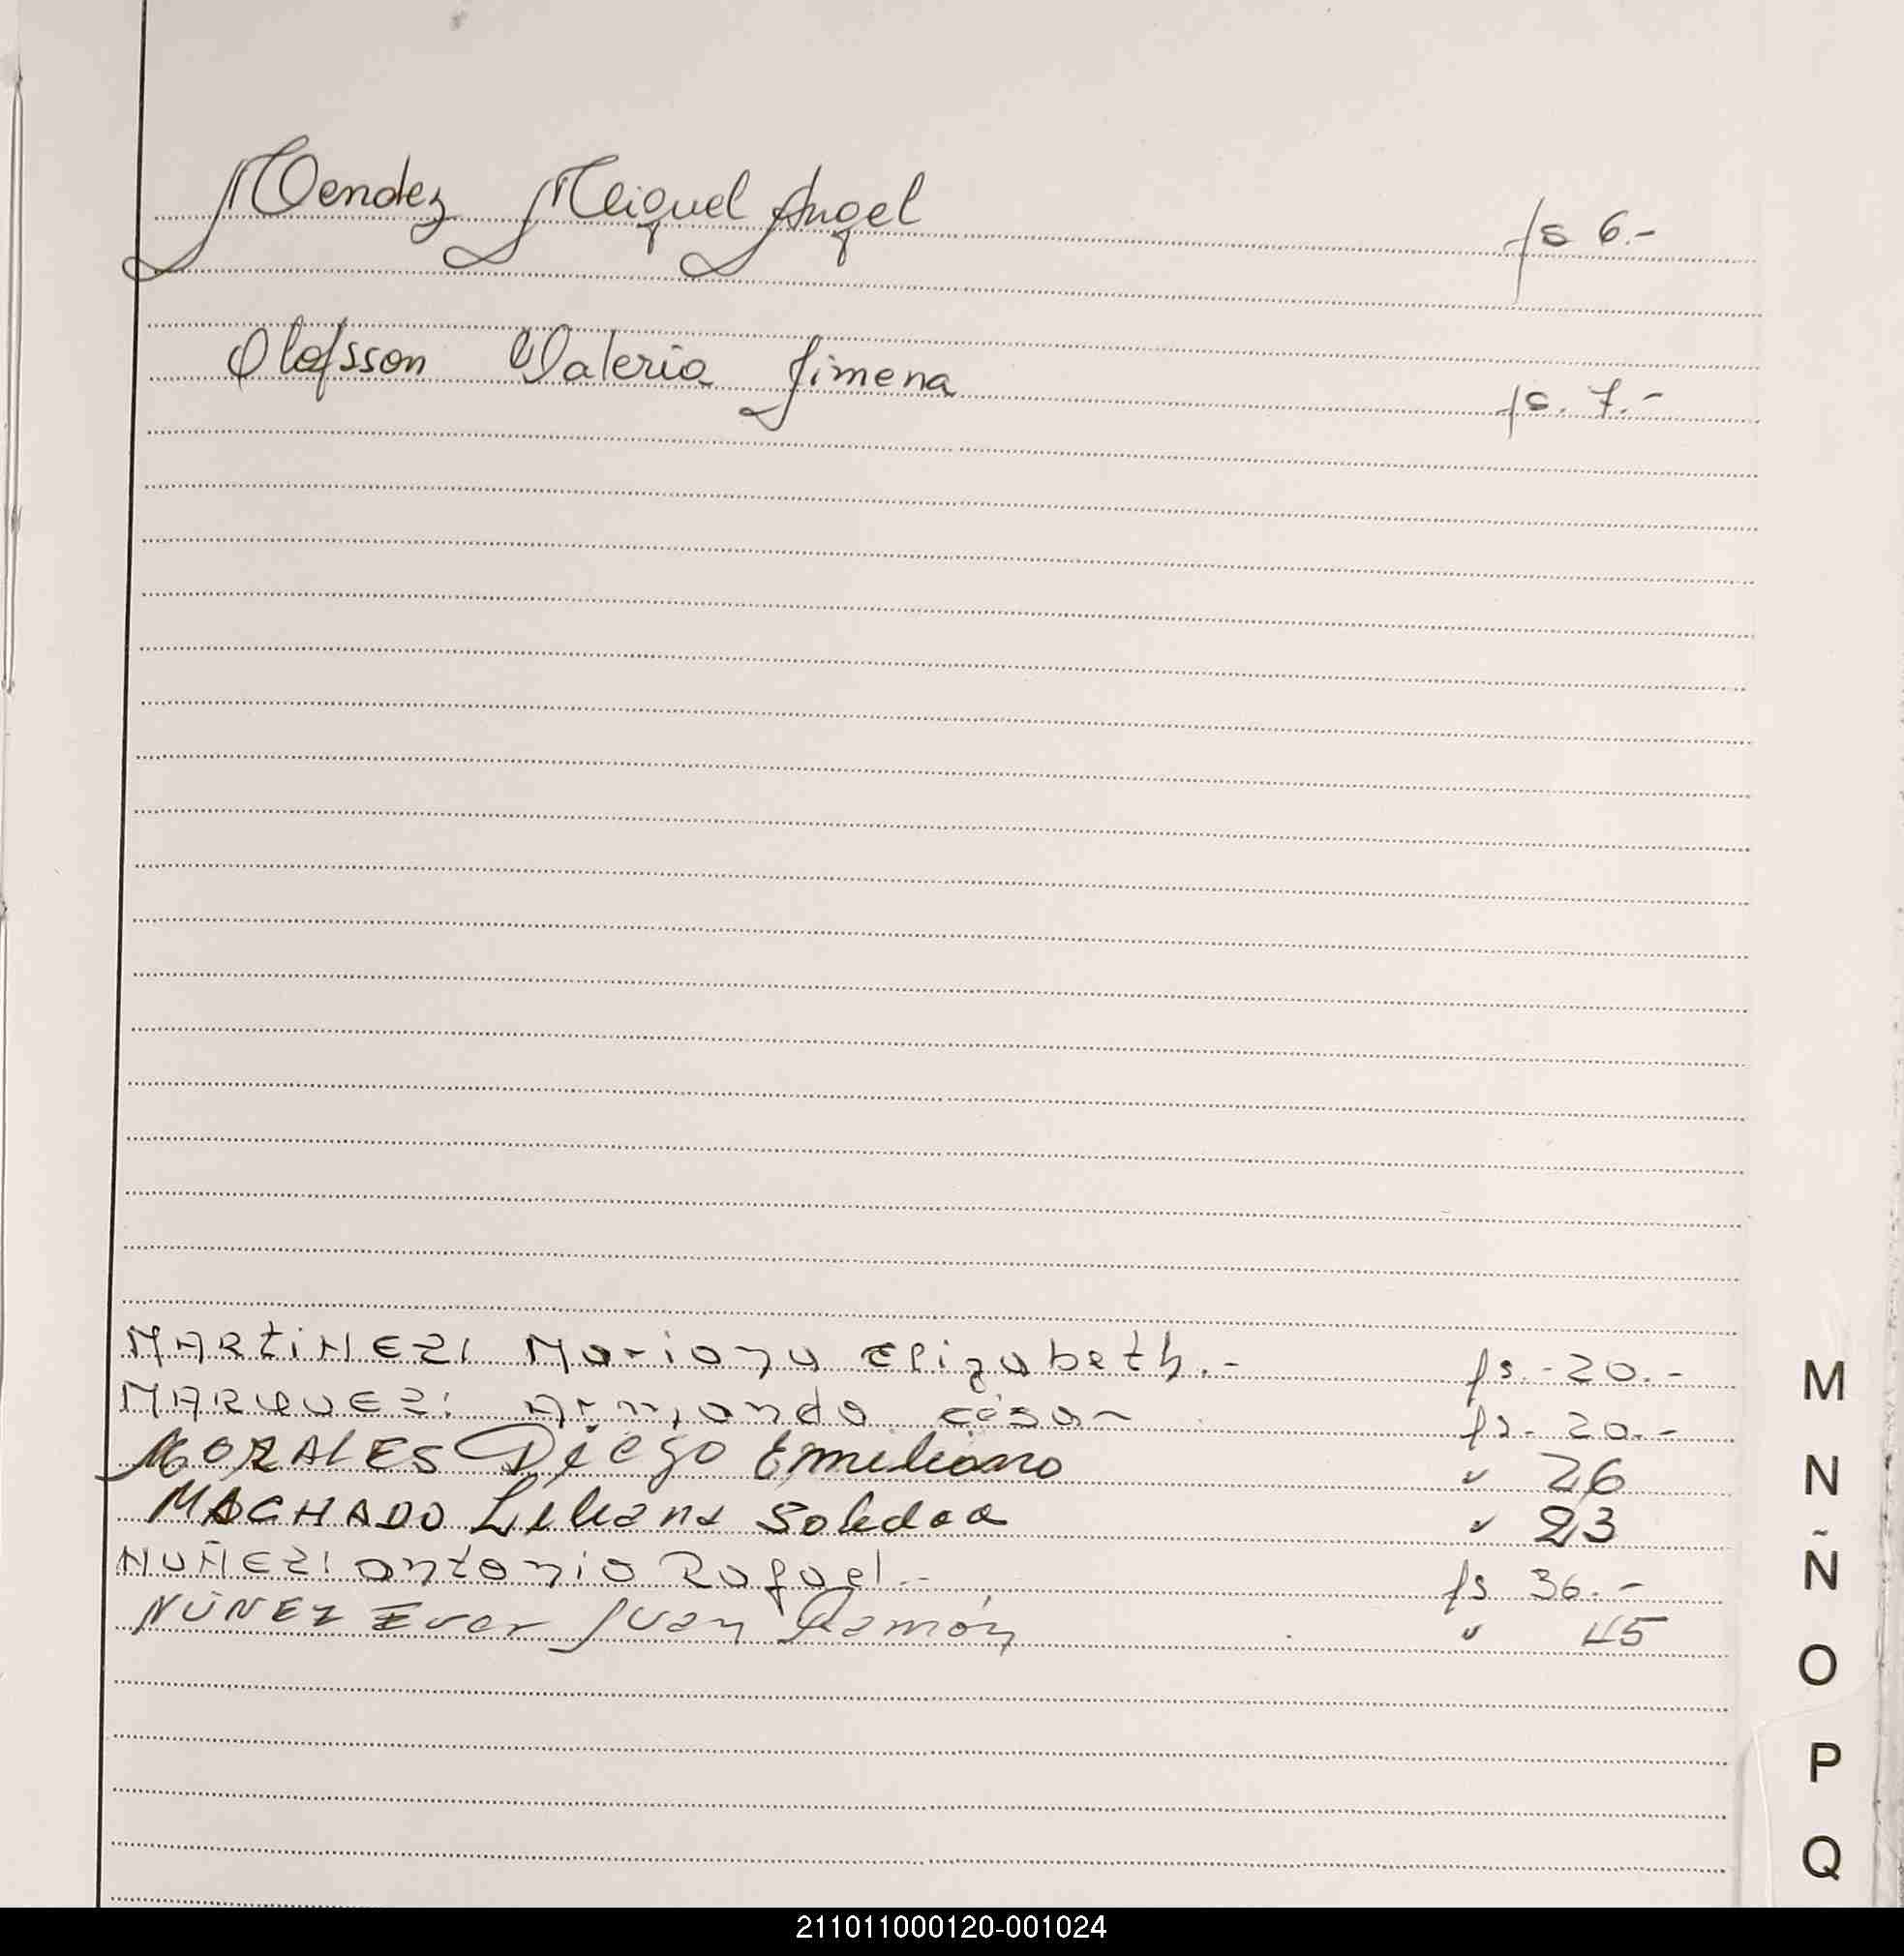 Mendez Miguel Angel fs 6.-
Olofsson Valeria Jimena fs. 7.-
MARTINEZ: Mariana Elizabeth.- fs.-20.-
MARQUEZ: Armando César fs.- 20.-
MORALES Diego Emiliano " 26
MACHADO Liliana Soledad " 23
NUÑEZ: Antonio Rafael.- fs 36.-
NÚÑEZ Ever Juan Ramón " 45
M
N
Ñ
O
P
Q
211011000120-001024